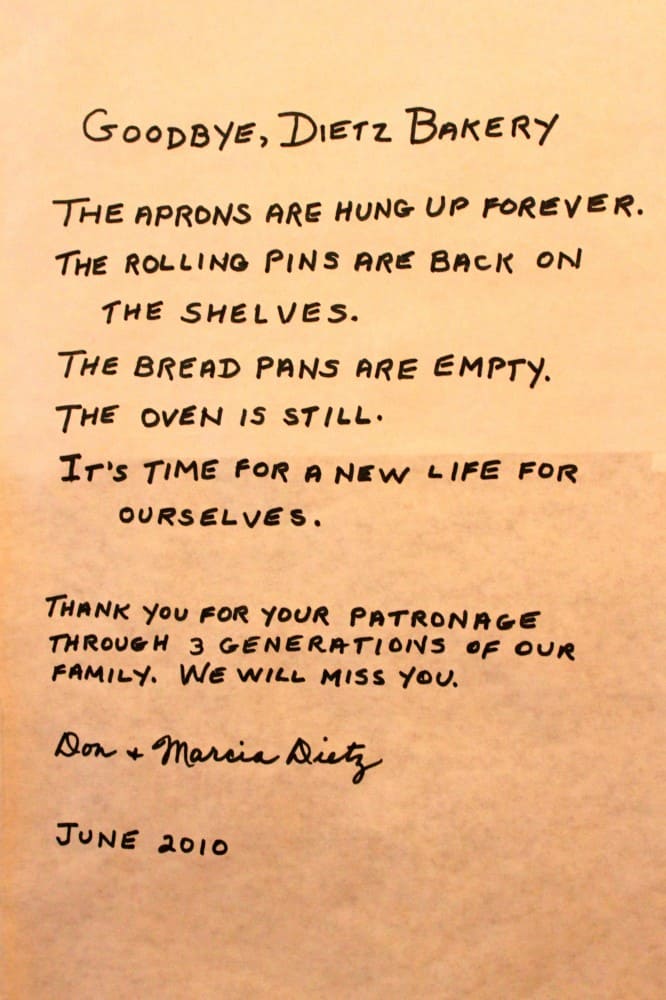 GOODBYE, DIETZ BAKERY
THE APRONS ARE HUNG UP FOREVER.
THE ROLLING PINS ARE BACK ON
THE SHELVES.
THE BREAD PANS ARE EMPTY.
THE OVEN IS STILL.
IT'S TIME FOR A NEW LIFE FOR
OURSELVES.
THANK YOU FOR YOUR PATRONAGE
THROUGH 3 GENERATIONS OF OUR
FAMILY. WE WILL MISS YOU.
Don + Marcia Dietz
JUNE 2010